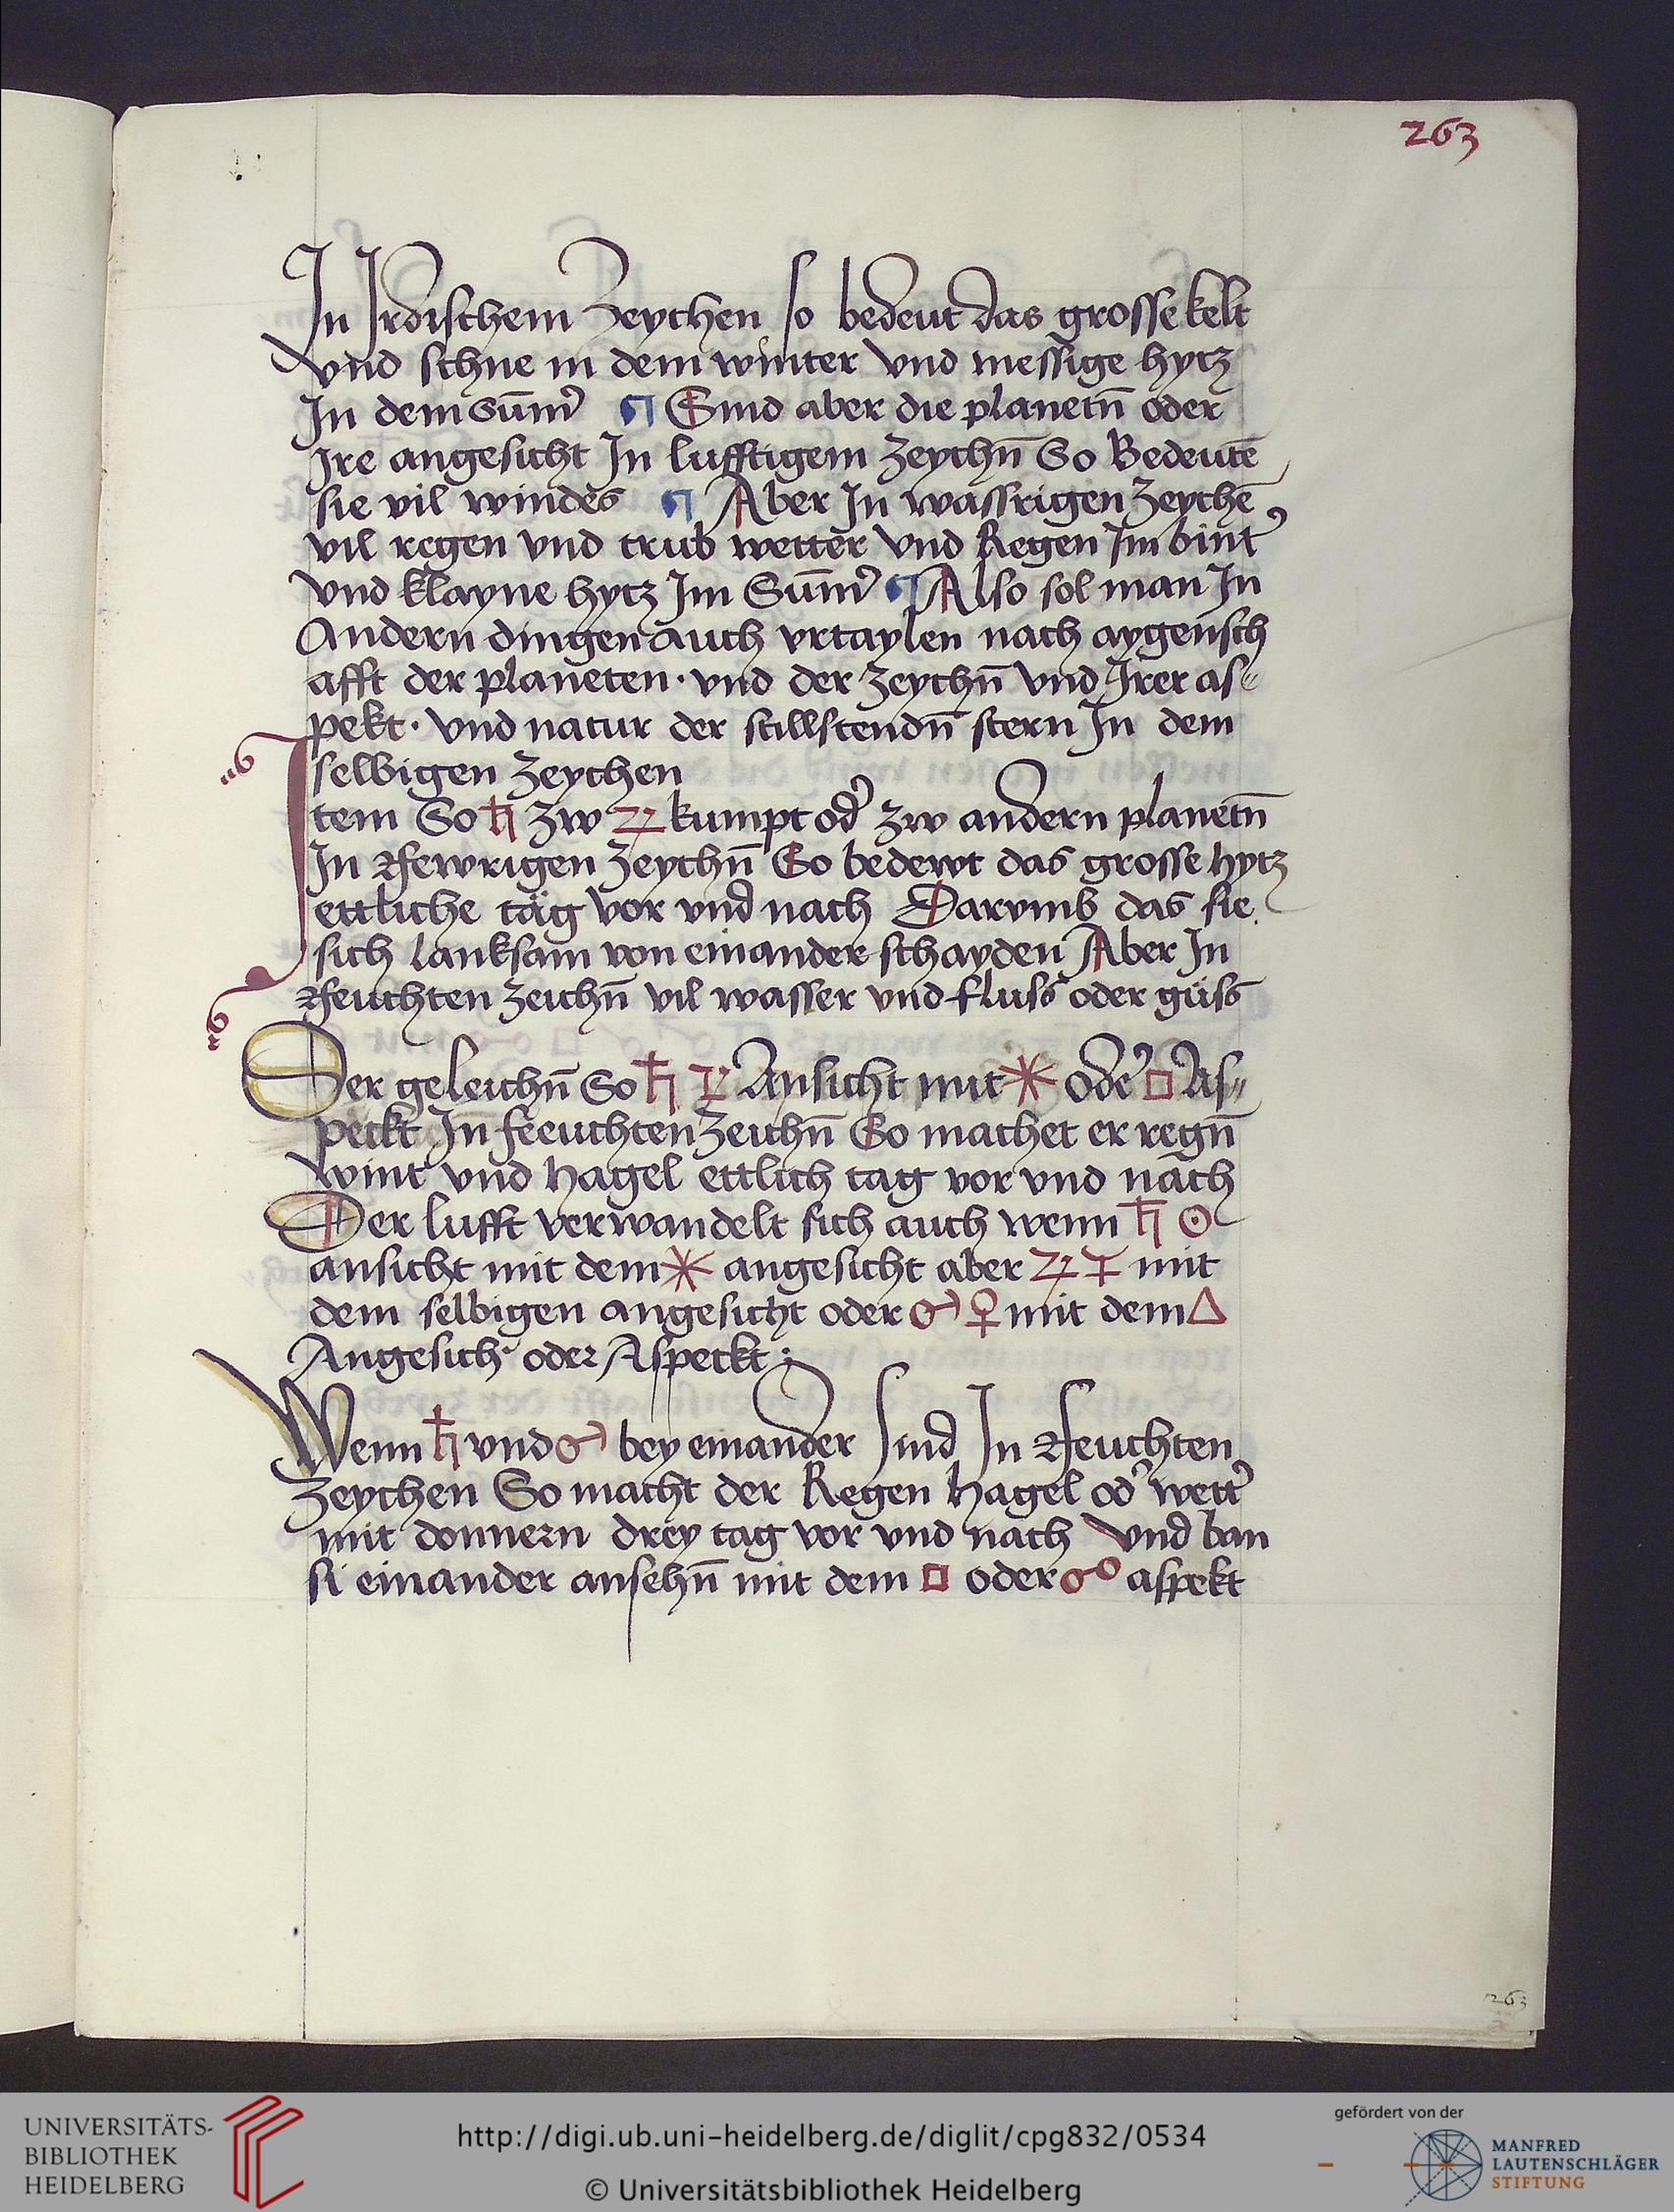 263
In Irdischem Zeychen so bedeut das grosse kelt
vnd schne in dem winter vnd messige hytz
In dem sūm̄er ¶ Sind aber die planetn̄ oder
Ire angesicht In lufftigem zeychn̄ So Bedeutē
sie vil windes ¶ Aber In wassrigen zeychē
vil regen vnd trub wetter vnd Regen Im bint᾽
vnd klayne hytz Im Sūm̄᾽ ¶ Also sol man In
Andern dingen auch vrtaylen nach aygensch
afft der planeten · vnd der zeychn̄ vnd Irer as⸗
pekt · vnd natur der stillstendn̄ stern In dem
selbigen zeychen
Item So ♄ zw ♃ kumpt od᾽ zw andern planetn̄
In ffewrigen zeychn̄ So bedewt das grosse hytz
ettliche täg vor vnd nach Darvmb das sie
sich lanksam von einander schayden Aber In
ffeuchten zeichn̄ vil wasser vnd fluss oder güss
Der geleichn̄ So ♄ Ansicht mit ⚹ ode᾽ □ As⸗
peckt In feeuchten zeichn̄ So machet er regn̄
wint vnd hagel ettlich tag vor vnd nach
Der lufft verwandelt sich auch wenn ♄ ☉
ansicht mit dem ⚹ angesicht aber ♃ mit
dem selbigen angesicht oder ♂ ♀ mit dem △
Angesich᾽ oder Aspeckt :
Wenn ♄ vnd ♂ bey einander sind In ffeuchten
Zeychen So macht der Regen hagel od᾽ wett᾽
mit donnern drey tag vor vnd nach vnd ban
si einander ansehn̄ mit dem □ oder ☍ aspekt
263
UNIVERSITÄTS-
BIBLIOTHEK
HEIDELBERG
http://digi.ub.uni-heidelberg.de/diglit/cpg832/0534
© Universitätsbibliothek Heidelberg
gefördert von der
MANFRED
LAUTENSCHLÄGER
STIFTUNG